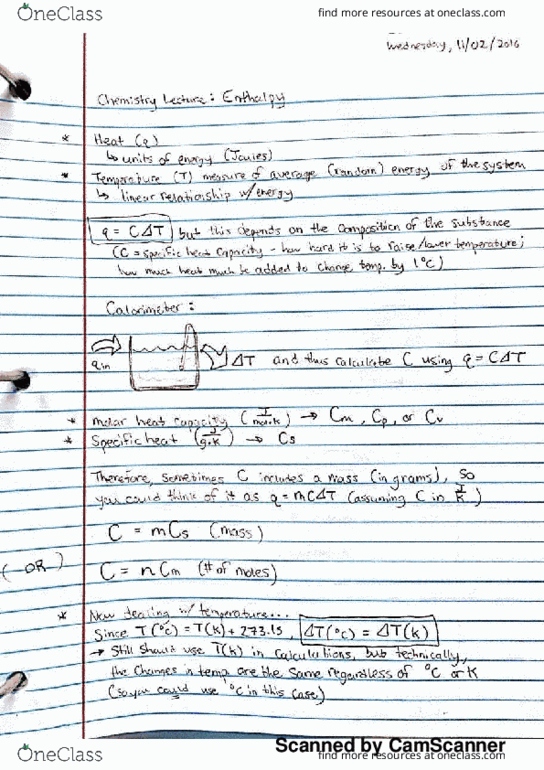 OneClass
find more resources at oneclass.com
Wednesday, 11/02/2016
Chemistry Lecture: Enthalpy
* Heat (q)
↳ units of energy (Joules)
* Temperature (T) measure of average (random) energy of the system
↳ linear relationship w/ energy
q = CΔT but this depends on the composition of the substance
(C = specific heat capacity - how hard it is to raise/lower temperature;
how much heat much be added to change temp. by 1°C)
Calorimeter:
q in
ΔT and thus calculate C using q = CΔT
* molar heat capacity (J/mol·K) → Cm, Cp, or Cv
* Specific heat (J/g·K) → Cs
Therefore, sometimes C includes a mass (in grams), so
you could think of it as q = mCΔT (assuming C in J/K)
C = mCs (mass)
(OR)
C = nCm (# of moles)
* Now dealing w/ temperature...
Since T(°C) = T(K) + 273.15, ΔT(°C) = ΔT(K)
→ Still should use T(K) in calculations, but technically,
the changes in temp are the same regardless of °C or K
(so you could use °C in this case)
Scanned by CamScanner
OneClass
find more resources at oneclass.com